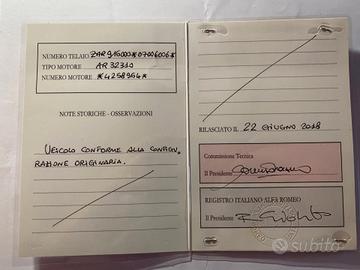 NUMERO TELAIO
TIPO MOTORE AR 32310
NUMERO MOTORE *4258954*
NOTE STORICHE - OSSERVAZIONI
VEICOLO CONFORME ALLA CONFIGU
RAZIONE ORIGINARIA.
RILASCIATO IL 22 GIUGNO 2018
Commissione Tecnica
Il Presidente
REGISTRO ITALIANO ALFA ROMEO
Il Presidente
subito